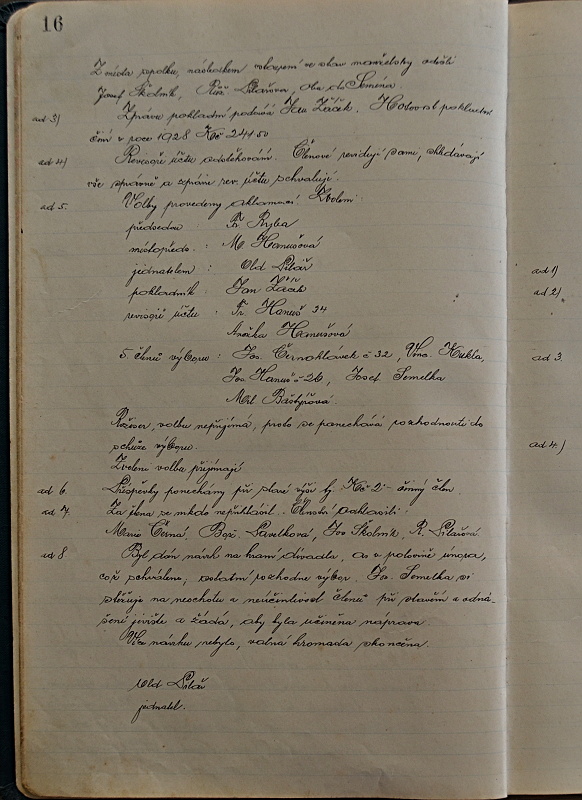 16
Z místa spolku, následkem vstoupení ve stav manželský odešli
Josef Školník, Růž. Pilařova, oba do Semína.
ad 3) Zprávu pokladní podává Jan Žáček. Hotovost pokladní
činí v roce 1928 Kč 241.50
ad 4) Revisoři účtu Členové revidují sami, shledávají
vše správně a zprávu rev. účtu schvalují.
ad 5. Volby provedeny aklamací. Zvoleni:
předsedou Fr. Ryba
místopředs. : M Hanušová
jednatelem : Old Pilař
pokladník : Jan Žáček
revisoři účtu : Fr. Hanuš 34
Anežka Hanušová
5. členů výboru : Jos. Černohlávek č 32, Vinc. Kukla,
Jos. Hanuš č 26, Josef Semelka
Mil Baštýřová.
volbu nepřijímá, proto se ponechává rozhodnouti do
schůze výboru.
Zvolení volbu přijímají
ad 6. Příspěvky ponechány při staré výši tj. Kč 2 - činný člen.
ad 7. Za člena se nikdo nepřihlásil. Členství odhlásili:
Marie Černá, Bož. Pavelková, Jos Školník, R. Pilařová.
ad 8 Byl dán návrh na hraní divadla, as v polovině února,
což schváleno, ostatní rozhodne výbor. Jos. Semelka si
stěžuje na neochotu a neúčinlivost členů při stavění a odná-
šení jeviště a žádá, aby byla učiněna náprava.
Více návrhů nebylo, valná hromada skončena.
Old Pilař
jednatel.
ad 1)
ad 2)
ad 3.
ad 4.)